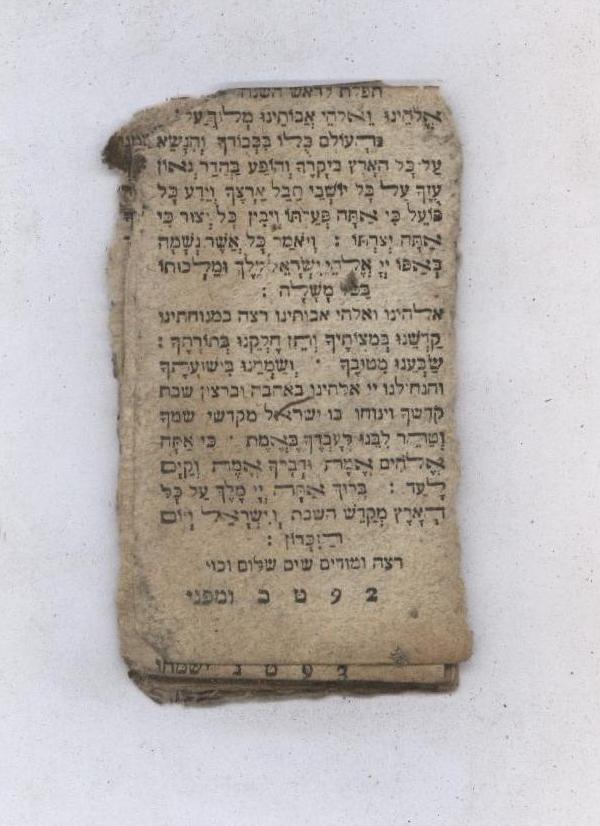 תפלת לראש השנה
אֱלֹהֵינוּ וֵאלֹהֵי אֲבוֹתֵינוּ מְלוֹךְ עַל
הָעוֹלָם כֻּלּוֹ בִּכְבוֹדֶךָ וְהִנָּשֵׂא
עַל כָּל הָאָרֶץ בִּיקָרֶךָ וְהוֹפַע בַּהֲדַר גְּאוֹן
עֻזֶּךָ עַל כָּל יוֹשְׁבֵי תֵבֵל אַרְצֶךָ וְיֵדַע כָּל
פּוֹעַל כִּי אַתָּה פְּעַלְתּוֹ וְיָבִין כָּל יְצוּר כִּי
אַתָּה יְצַרְתּוֹ : וְיֹאמַר כָּל אֲשֶׁר נְשָׁמָה
בְּאַפּוֹ יְיָ אֱלֹהֵי יִשְׂרָאֵל מֶלֶךְ וּמַלְכוּתוֹ
בַּכֹּל מָשָׁלָה :
אלהינו ואלהי אבותינו רצה במנוחתינו
קַדְּשֵׁנוּ בְּמִצְוֹתֶיךָ וְתֵן חֶלְקֵנוּ בְּתוֹרָתֶךָ :
שַׂבְּעֵנוּ מִטּוּבֶךָ · וְשַׂמְּחֵנוּ בִּישׁוּעָתֶךָ
והנחילנו יי אלהינו באהבה וברצון שבת
קדשך וינוחו בו ישראל מקדשי שמך
וְטַהֵר לִבֵּנוּ לְעָבְדְּךָ בֶּאֱמֶת · כִּי אַתָּה
אֱלֹהִים אֱמֶת וּדְבָרְךָ אֱמֶת וְקַיָּם
לָעַד : בָּרוּךְ אַתָּה יְיָ מֶלֶךְ עַל כָּל
הָאָרֶץ מְקַדֵּשׁ השבת וְיִשְׂרָאֵל וְיוֹם
הַזִּכָּרוֹן :
רצה ומודים שים שלום וכו'
ומפני ב ט 9 2
ישמחו ט 9 3